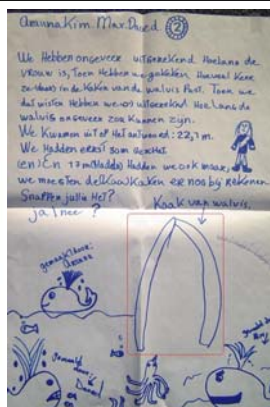 Amuna Kim. Mar. David 2
We Hebben ongeveer uitgerekend Hoelang de
vrouw is, Toen Hebben we gekeken Hoeveel Keer
ze in de Kaken van de walvis Past. Toen we
dat wisten Hebben we uitgerekend Hoelang de
walvis ongeveer zou Kunnen zijn.
We Kwamen uit op Het antwoord: 22,1 m.
We Hadden eerst som
17 m Hadden we ook maar,
we moesten de Kaak er nog bij rekenen.
Snappen jullie Het?
ja/nee?
Kaak van walvis.
gemaakt door:
Amuna
gemaakt
door:
gemaakt
door: